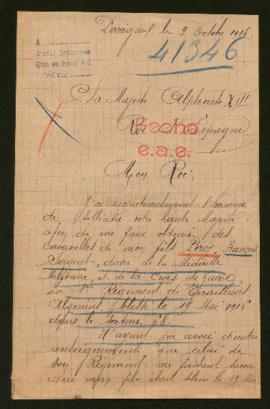 le 9 Octobre 1916
A
41346
Sa Majesté Alphonse XIII
Roi d'Espagne
Hecho
e.a.e.
Mon Roi,
J'ai respectueusement l'honneur
de solliciter votre haute Majesté
afin de me faire obtenir des
nouvelles de mon fils Pérès François
Sergent, décoré de la Médaille
Militaire et de la Croix de Guerre
au Régiment de Tirailleurs
Algériens, blessé le 19 Mai 1916
dans le Secteur
N'ayant pu avoir d'autres
renseignements que celui de
son Régiment me faisant savoir
que mon fils était blessé le 19 Mai